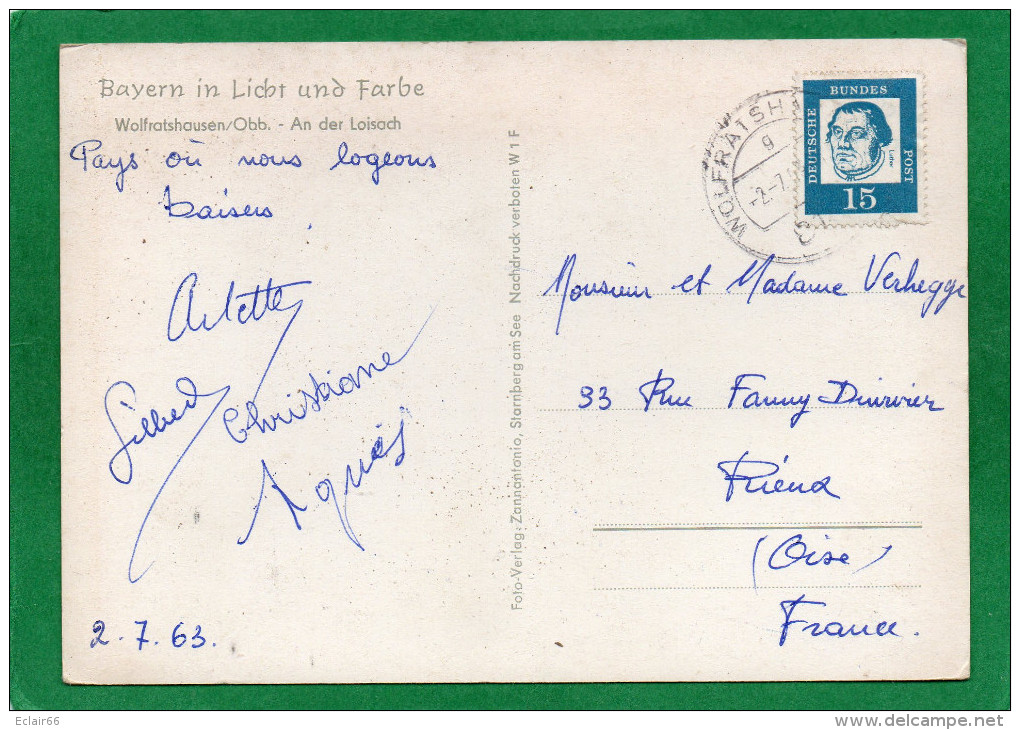 Bayern in Licht und Farbe
Wolfratshausen/Obb. - An der Loisach
Pays où nous logeons
baisers
Arlette
Gilbert
Christiane
Agnès
2.7.63.
Foto-Verlag: Zannantonio, Starnberg am See Nachdruck verboten W 1 F
WOLFRATSH
g
-2.-7.
DEUTSCHE
BUNDES
POST
Luther
15
Monsieur et Madame Verhegge
93 Rue Fanny Duvivier
(Oise)
France.
Eclair66
www.delcampe.net